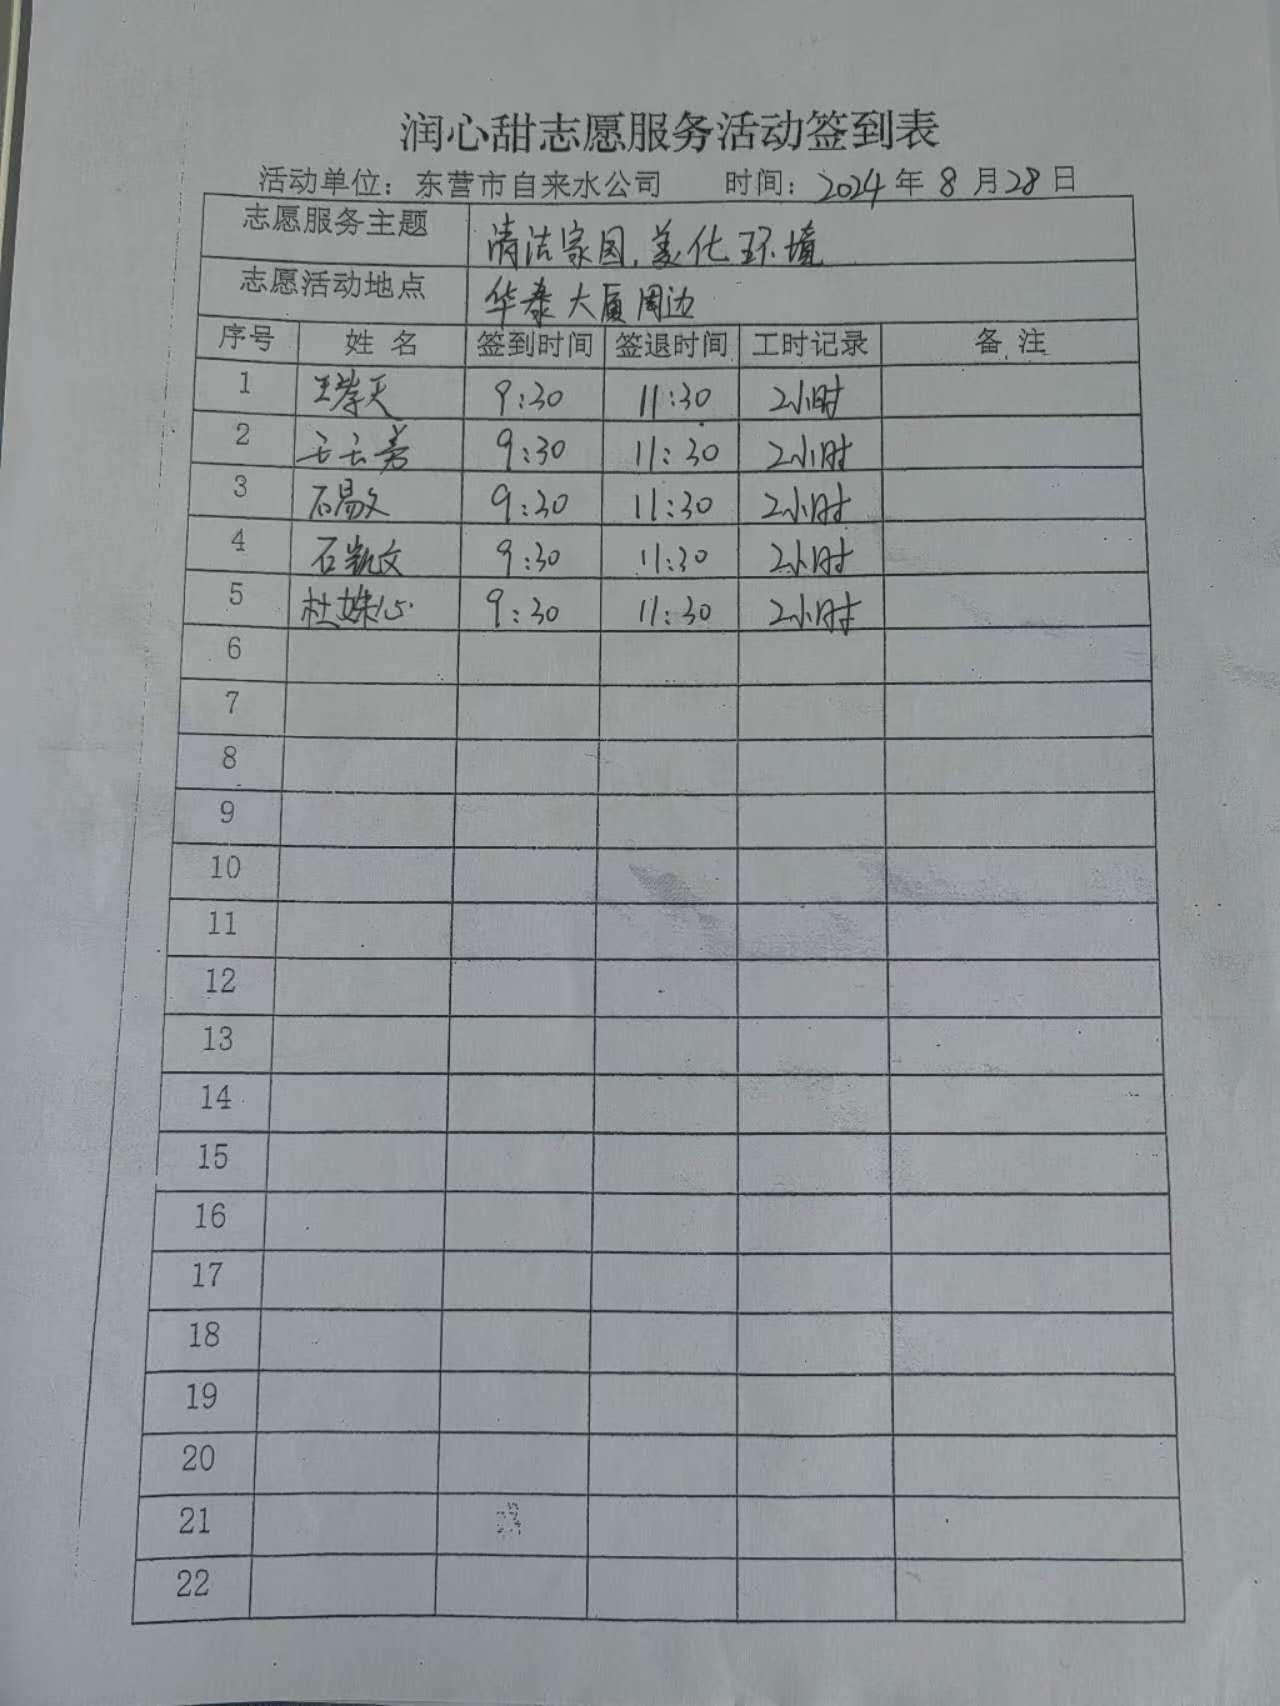 润心甜志愿服务活动签到表
活动单位：东营市自来水公司 时间：2024年8月28日
志愿服务主题 清洁家园,美化环境
志愿活动地点 华泰大厦周边
序号 姓名 签到时间 签退时间 工时记录 备注
1 王孝天 9:30 11:30 2小时
2 王云芳 9:30 11:30 2小时
3 石易文 9:30 11:30 2小时
4 石凯文 9:30 11:30 2小时
5 杜姝心 9:30 11:30 2小时
6
7
8
9
10
11
12
13
14
15
16
17
18
19
20
21
22